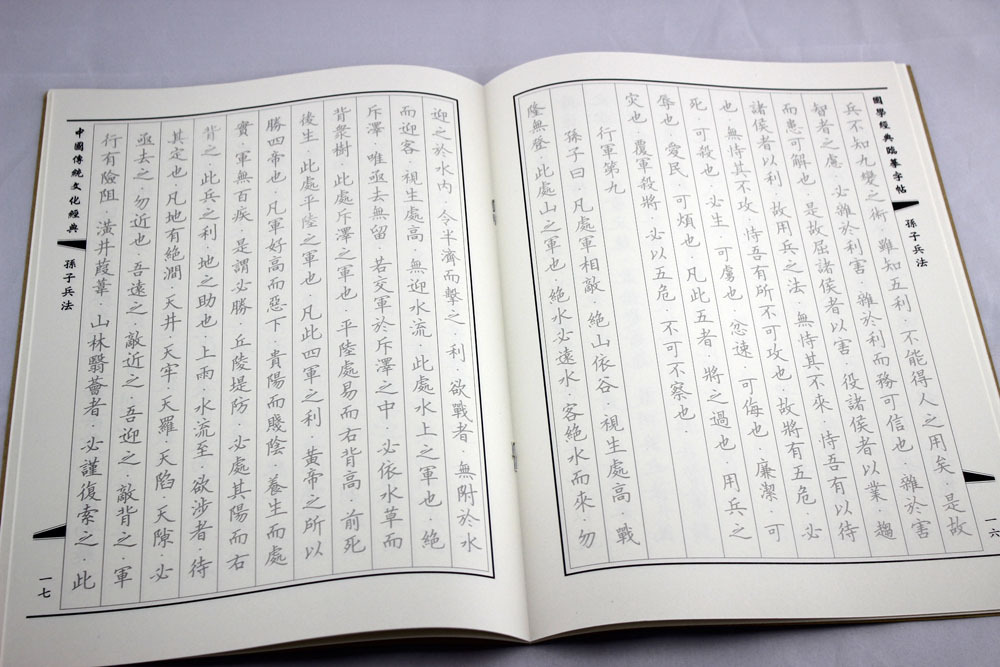 國學經典臨摹字帖
孫子兵法
一六
兵不知九變之術·雖知五利·不能得人之用矣·是故
智者之慮·必雜於利害·雜於利而務可信也·雜於害
而患可解也·是故屈諸侯者以害·役諸侯者以業·趨
諸侯者以利·故用兵之法·無恃其不來·恃吾有以待
也·無恃其不攻·恃吾有所不可攻也·故將有五危·必
死·可殺也·必生·可虜也·忿速·可侮也·廉潔·可
辱也·愛民·可煩也·凡此五者·將之過也·用兵之
災也·覆軍殺將·必以五危·不可不察也·
行軍第九
孫子曰·凡處軍相敵·絕山依谷·視生處高·戰
隆無登·此處山之軍也·絕水必遠水·客絕水而來·勿
迎之於水內·令半濟而擊之·利·欲戰者·無附於水
而迎客·視生處高·無迎水流·此處水上之軍也·絕
斥澤·唯亟去無留·若交軍於斥澤之中·必依水草而
背衆樹·此處斥澤之軍也·平陸處易而右背高·前死
後生·此處平陸之軍也·凡此四軍之利·黃帝之所以
勝四帝也·凡軍好高而惡下·貴陽而賤陰·養生而處
實·軍無百疾·是謂必勝·丘陵堤防·必處其陽而右
背之·此兵之利·地之助也·上雨·水流至·欲涉者·待
其定也·凡地有絕澗·天井·天牢·天羅·天陷·天隙·必
亟去之·勿近也·吾遠之·敵近之·吾迎之·敵背之·軍
行有險阻·潢井葭葦·山林翳薈者·必謹復索之·此
中國傳統文化經典
孫子兵法
一七